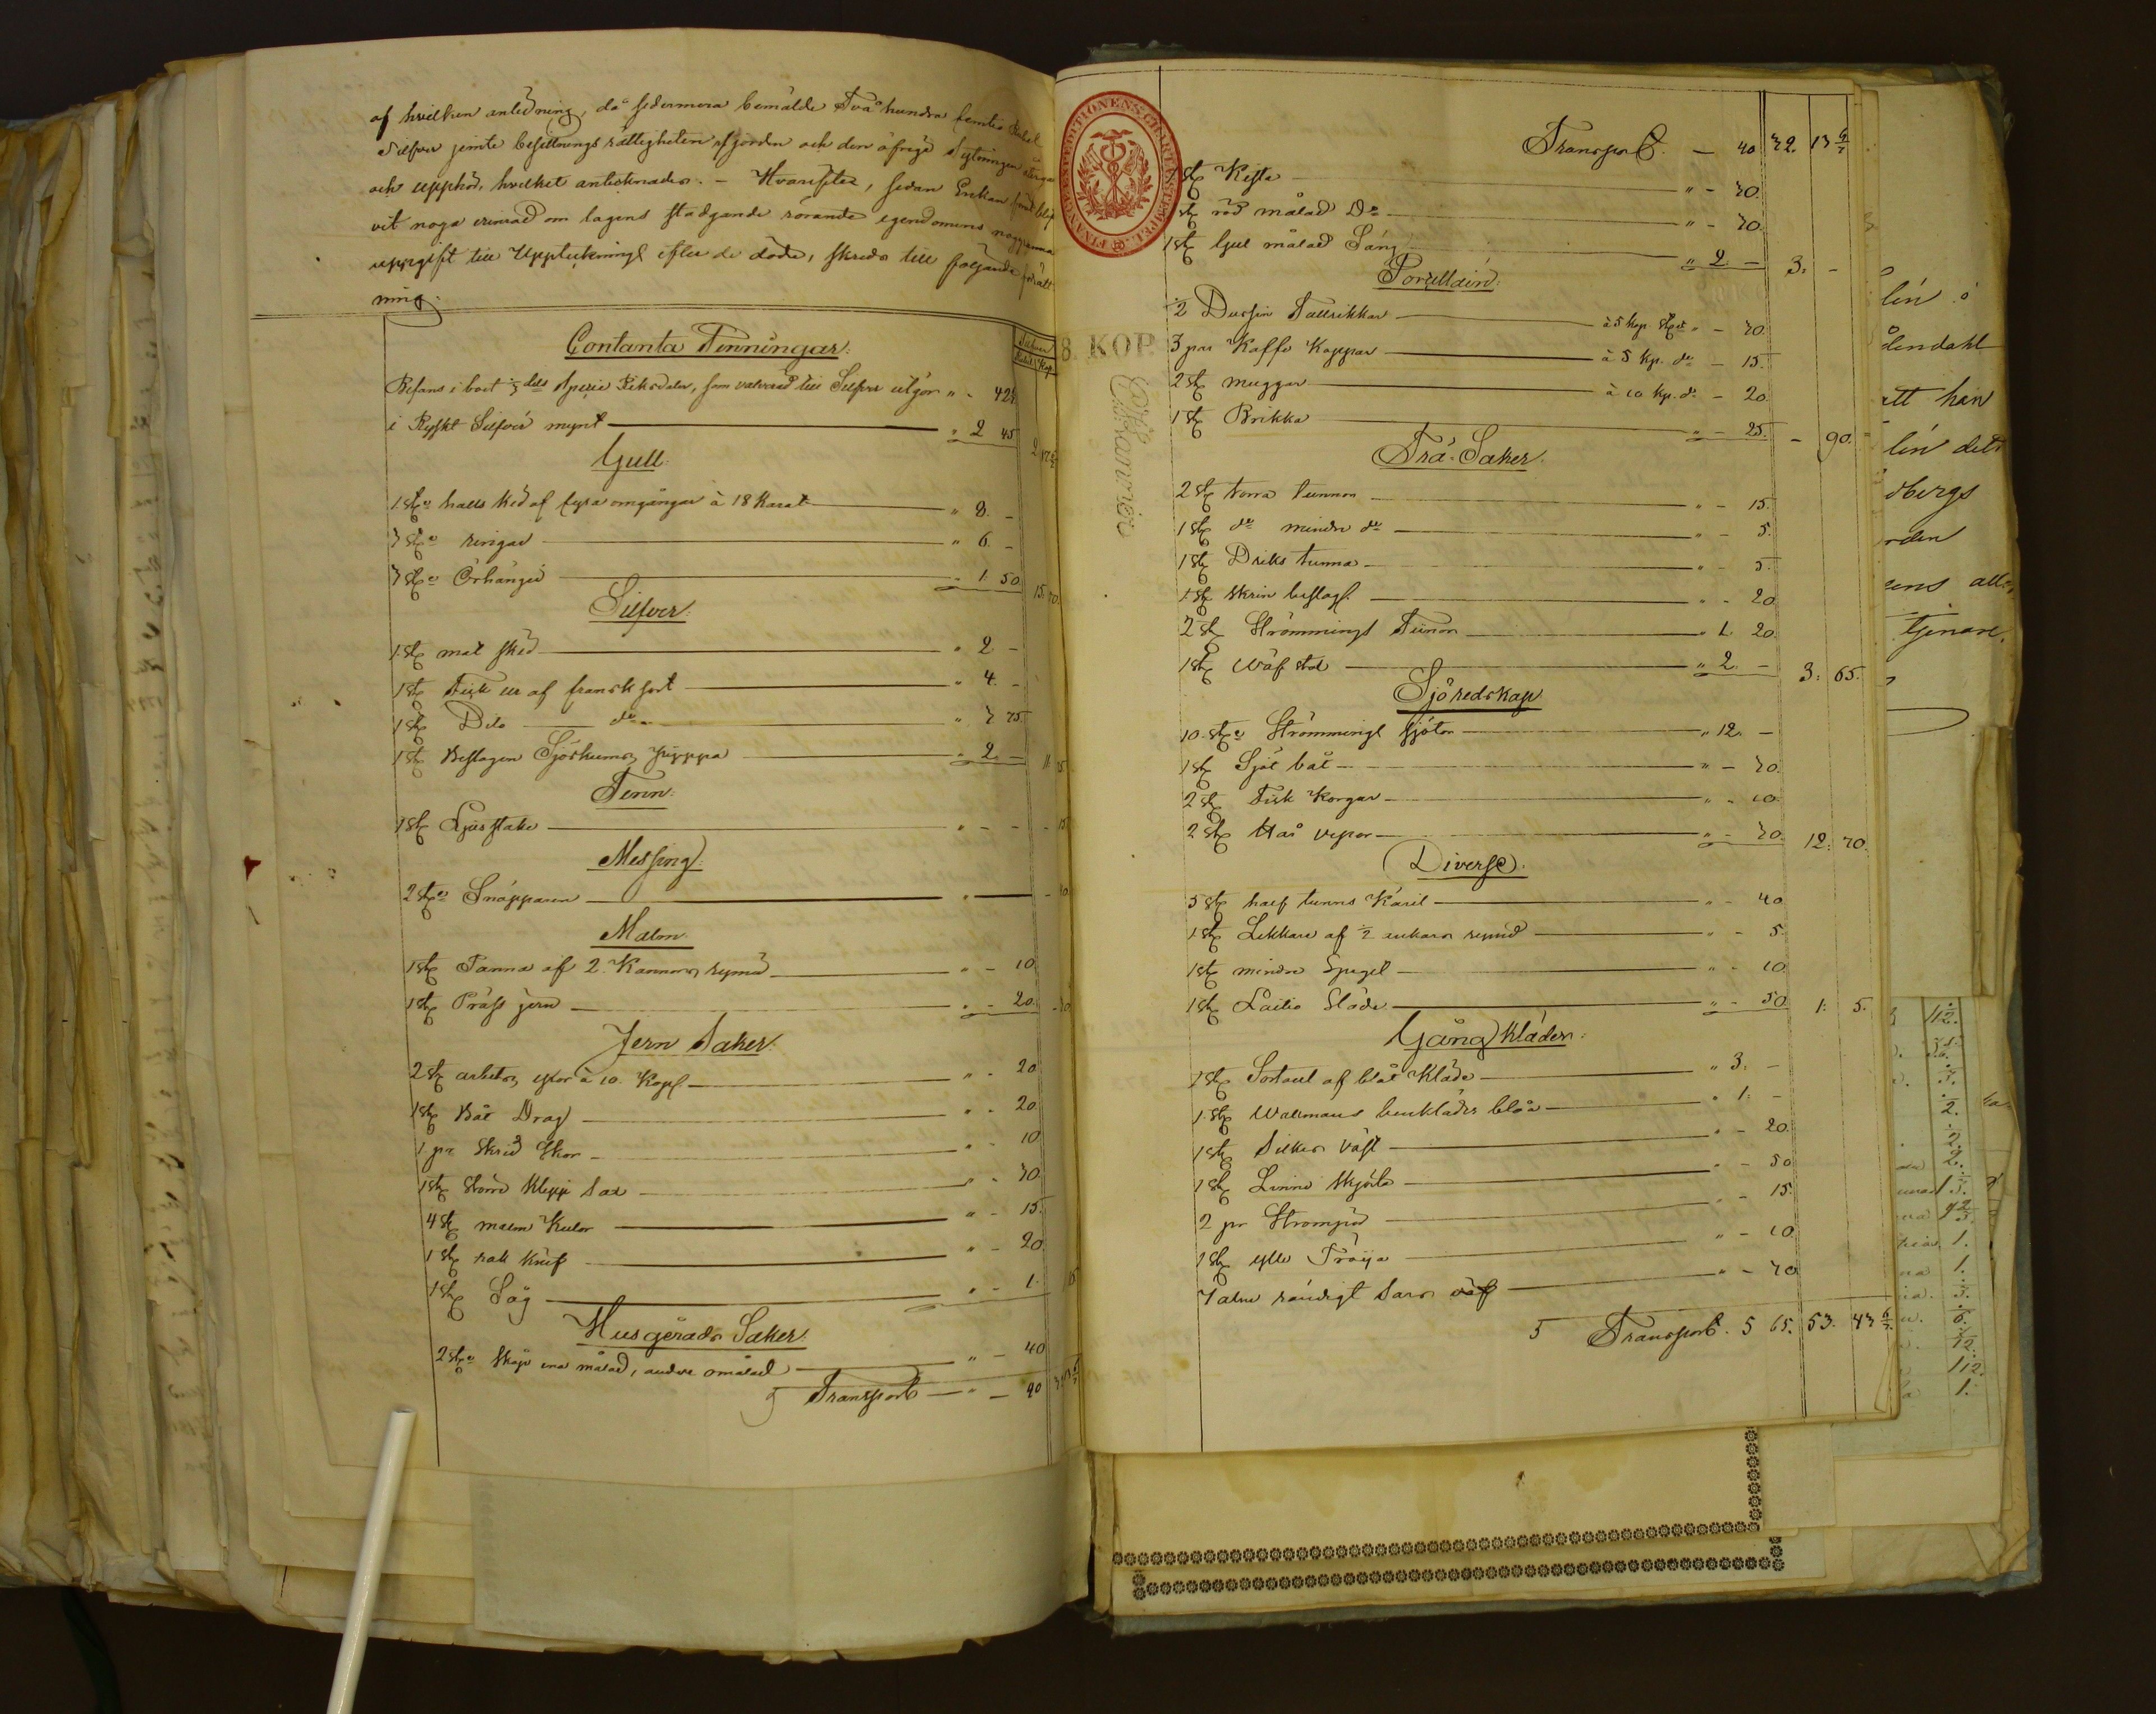 af hvilken anledning, då sedermera bemälde Två hundra femtio Rubel
Silfver jemte besittnings rättigheten afgörden och den öfriga Sytningen
och upphör, hvilket antecknades. – Hvarefter, sedan Enkan
vit noga erinrad om lagens stadgande rörande egendomens noggranna
uppgift till Upptecknings efter de döde, skreds till följande förätt
ning.
Contanta Penningar:
Silfver
Rubel Kop.
i bot dels Specie Riksdaler, som valverad till Silfver utgör " - 42
i Ryskt Silfver mynt " 2 45
Gull:
1 st. hals ked af fyra omgångar à 18 Karat " 8. -
3 st. ringar " 6. -
3 st. Örhängen " 1. 50.
Silfver:
1 st. mat sked " 2 -
1 st. Fick ur af fransk sort " 4. -
1 st. Dito do " 3 75
1 st. Beslagen Sjöskums pippa " 2 -
Tenn:
1 st. Ljusstake " - -
Messing:
2 st. Snäpparen "
Malm
1 st. Panna af 2. Kannors rymd " - 10
1 st. Präss jern " - 20.
Jern Saker:
2 st. arbets yxor à 10. Kop. " - 20
1 st. Båt Drag " - 20.
1 pr Skrid skor " - 10
1 st. större Klipp Sax " - 30.
4 st. malm Kulor " - 15.
1 st. rak Knif " - 20.
1 st. Såg " - 1.
Husgeråds Saker:
2 st. Skåp ena målad, andre omålad " - 40
Transport " - 40
8. KOP.
FINANCE-EXPEDITIONENS CHARTÆ STEMPEL
Transport. - 40 32. 13 6/7
st. Kista " - 30.
st. röd målad Do " - 70.
1 st. Gul målad Säng " 2 - 3: -
Porcellain:
1/2 Dussin Tallrikkar à 5 kop. st. " - 30
3 par Kaffe Koppar à 5 kp. do - 15.
2 st. muggar à 10 kp. do - 20
1 st. Brikka " - 25. - 90.
Trä-Saker.
2 st. torra tunnor " - 15.
1 st. do mindre do " - 5.
1 st. Driks tunna " - 5.
1 st. skrin beslag. " - 20
2 st. Strömmings Tunnor " 1. 20.
1 st. Wäf stol " 2 - 3: 65.
Sjöredskap
10. st. Strömmings skjötor " 12. -
1 st. Sjöt båt " - 30.
2 st. Fisk Korgar " - 10.
2 st. " - 30. 12: 70.
Diverse.
5 st. half tunns Käril " - 40
1 st. Lekkare af 1/2 ankars rymd " - 5.
1 st. mindre Spegel " - 10
1 st. Släde " - 50 1: 5.
Gång Kläder:
1 st. Sortout af blåt Kläde " 3: -
1 st. Wallmans benkläder blåa " 1: -
1 st. Silkes väst " - 20.
1 st. Linne skjorta " - 50
2 pr Strumpor " - 15.
1 st. ylle Tröija " - 10
7 alnr randigt Sars " - 70
5 Transport. 5 65. 53. 43 6/7.
lin
dendahl
att han
lin det
dbergs
rden
ens all
tjenare.